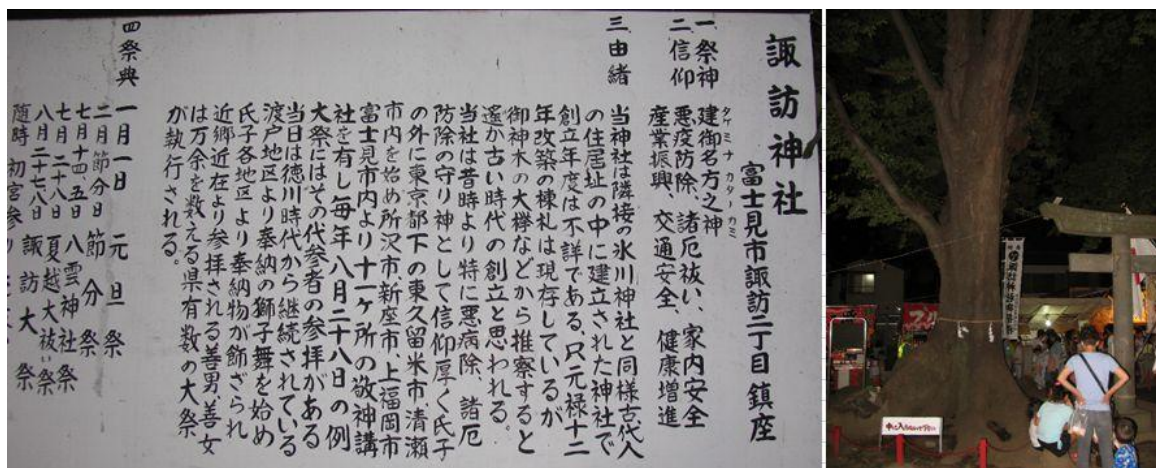 諏訪神社
富士見市諏訪二丁目鎮座
一祭神
建御名方之神
タケミナカタノカミ
二信仰
悪疫防除、諸厄祓い、家内安全
産業振興、交通安全、健康増進
三由緒
当神社は隣接の氷川神社と同様古代人
の住居址の中に建立された神社で
創立年度は不詳である、只元禄十二
年改築の棟札は現存しているが
御神木の大欅などから推察すると
遙か古い時代の創立と思われる。
当社は昔時より特に悪病除、諸厄
防除の守り神として信仰厚く氏子
の外に東京都下の東久留米市、清瀬
市内を始め所沢市、新座市、上福岡市
富士見市内より十一ヶ所の敬神講
社を有し毎年八月二十八日の例
大祭にはその代参者の参拝がある
当日は徳川時代から継続されている
渡戸地区より奉納の獅子舞を始め
氏子各地区より奉納物が飾ざられ
近郷近在より参拝される善男善女
は万余を数える県有数の大祭
が執行される。
四祭典
一月一日 元旦祭
二月節分日 節分祭
七月十四、五日 八雲神社祭
七月二十八日 夏越大祓い祭
八月二十七、八日 諏訪大祭
随時 初宮参り